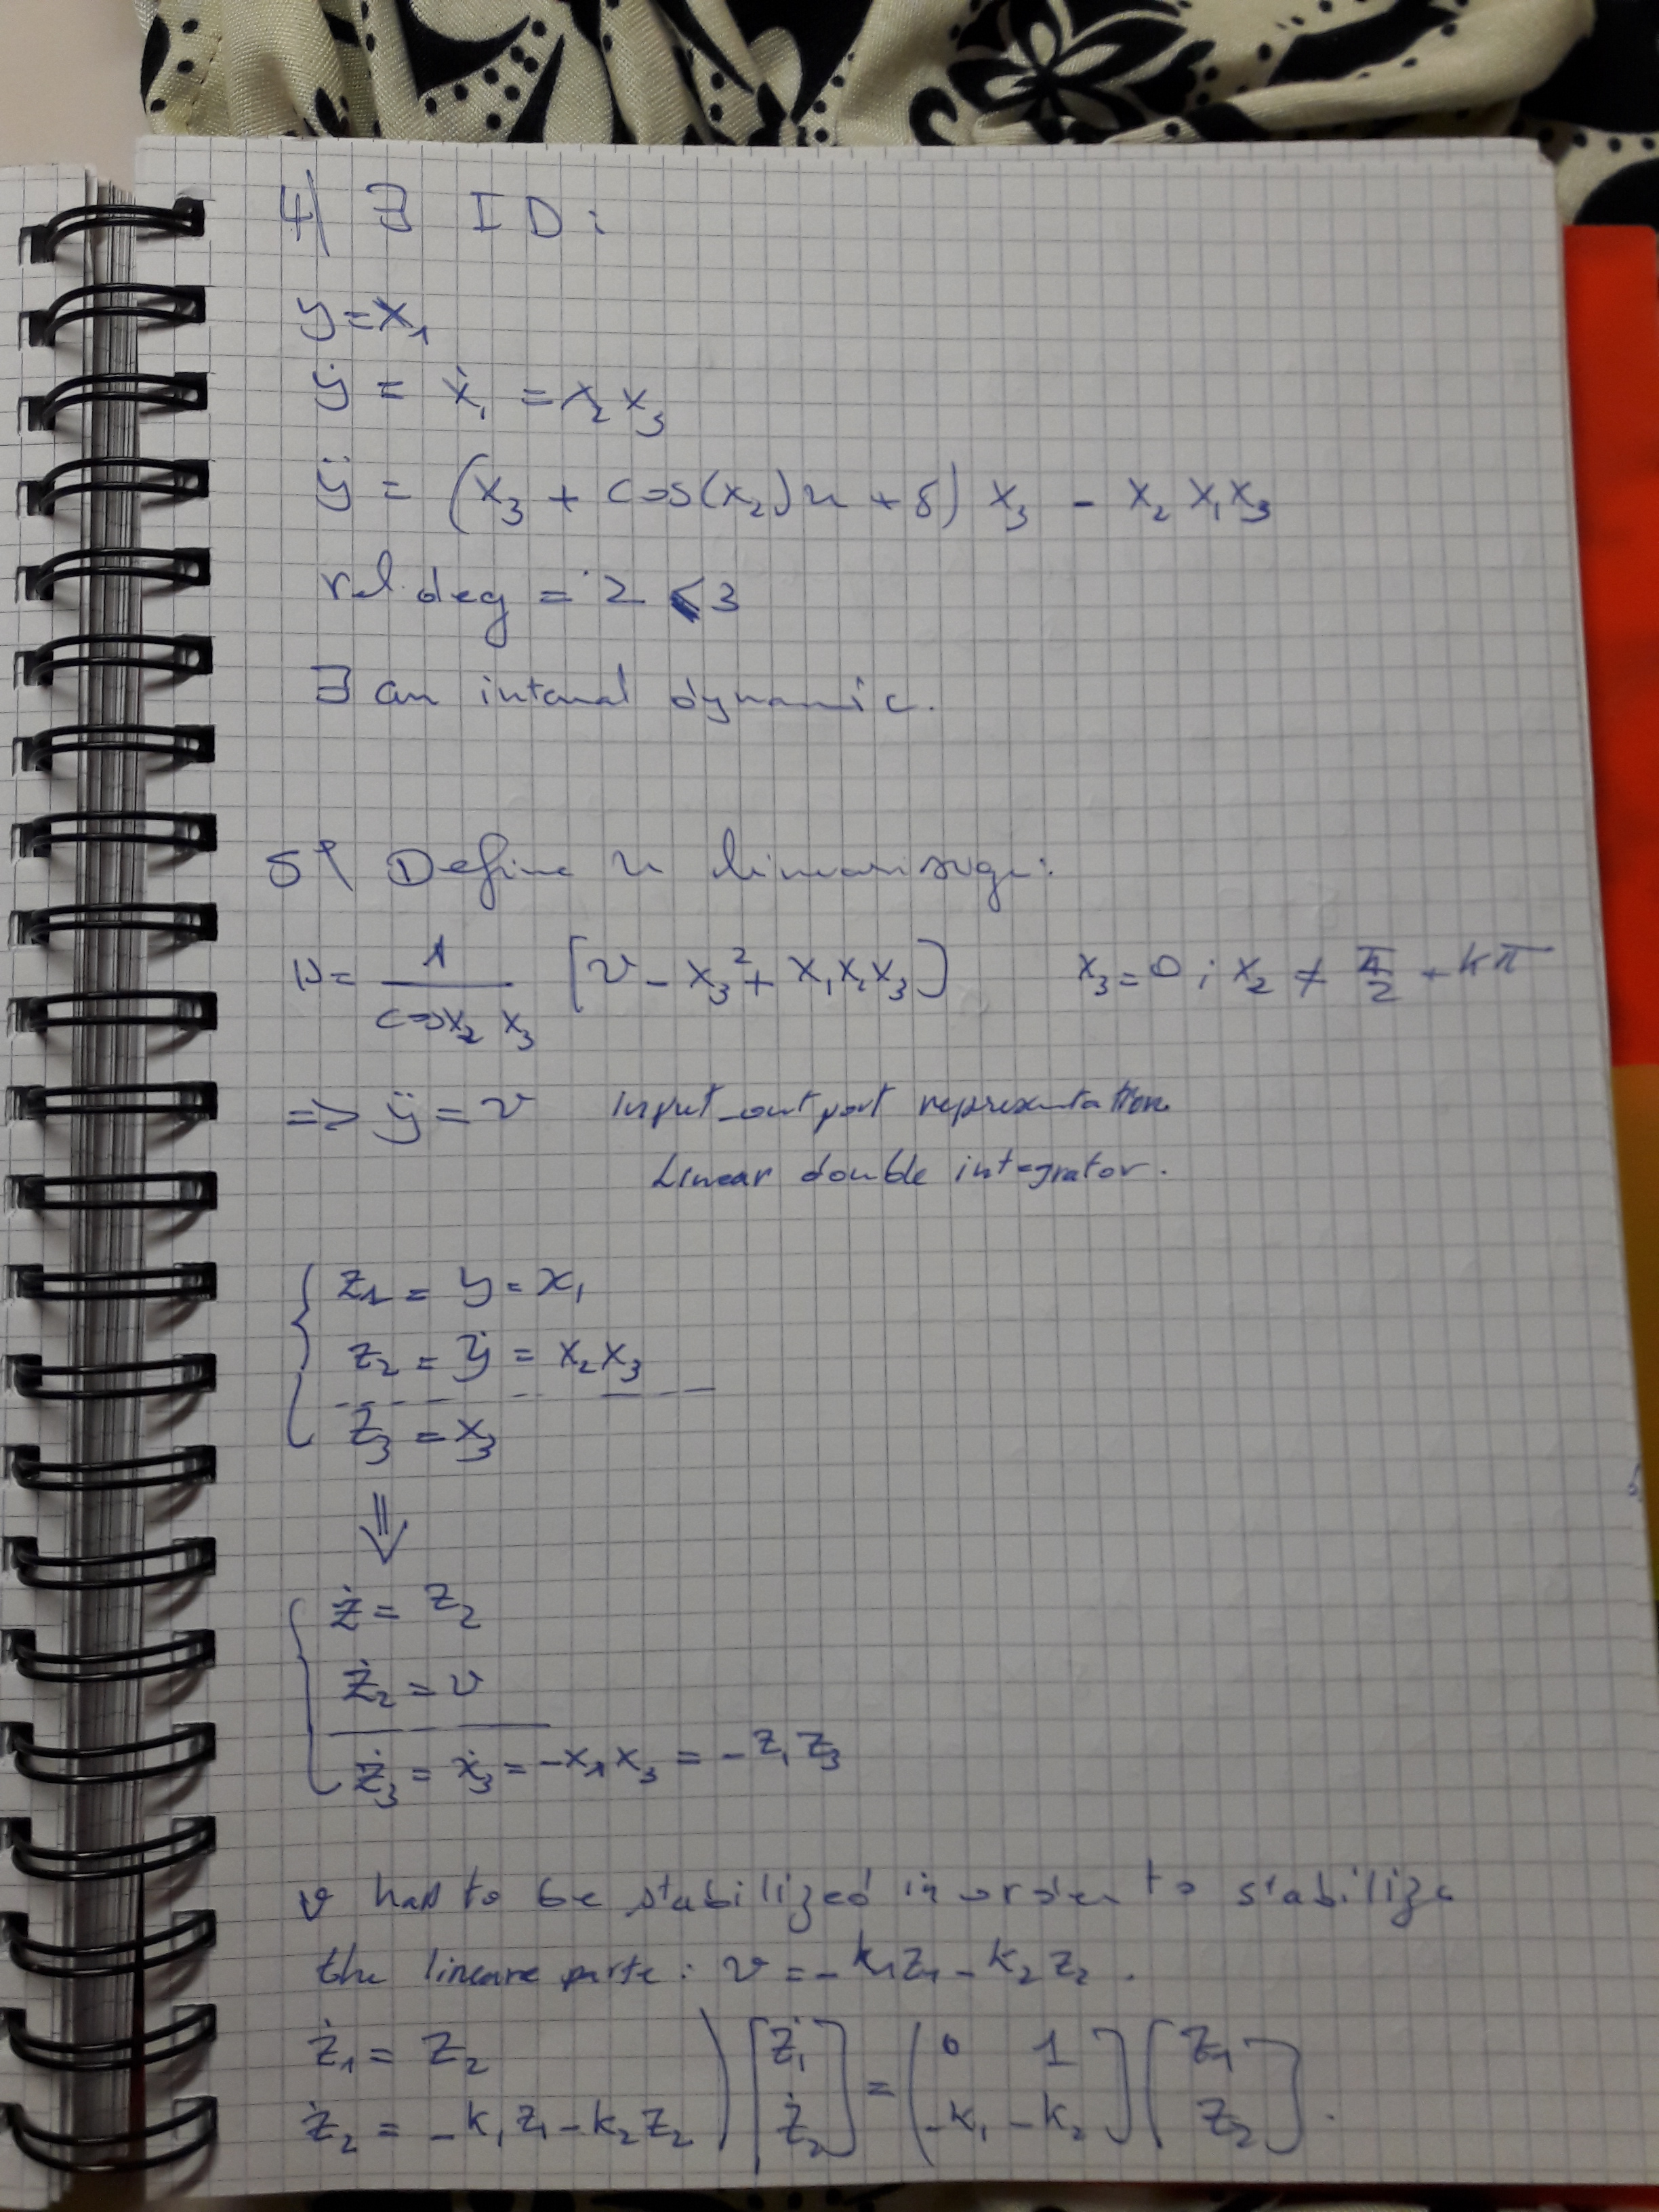 4) ∃ I D :
y = x₁
ẏ = ẋ₁ = x₂ x₃
ÿ = (x₃ + cos(x₂)u + δ) x₃ - x₂ x₁ x₃
rel. deg = 2 < 3
∃ an internal dynamic.
5) Define u
u = 1 / (cos x₂ x₃) [v - x₃² + x₁ x₂ x₃] x₃ = 0 ; x₂ ≠ π/2 + kπ
=> ÿ = v input-output representation
Linear double integrator.
{ z₁ = y = x₁
z₂ = ẏ = x₂ x₃
z₃ = x₃
⇓
{ ż = z₂
ż₂ = v
ż₃ = ẋ₃ = -x₁ x₃ = - z₁ z₃
v has to be stabilized in order to stabilize
the lineare parte : v = - k₁ z₁ - k₂ z₂ .
ż₁ = z₂
ż₂ = - k₁ z₁ - k₂ z₂ ) [ż₁ ; ż₂] = (0 1 ; -k₁ -k₂] [z₁ ; z₂] .